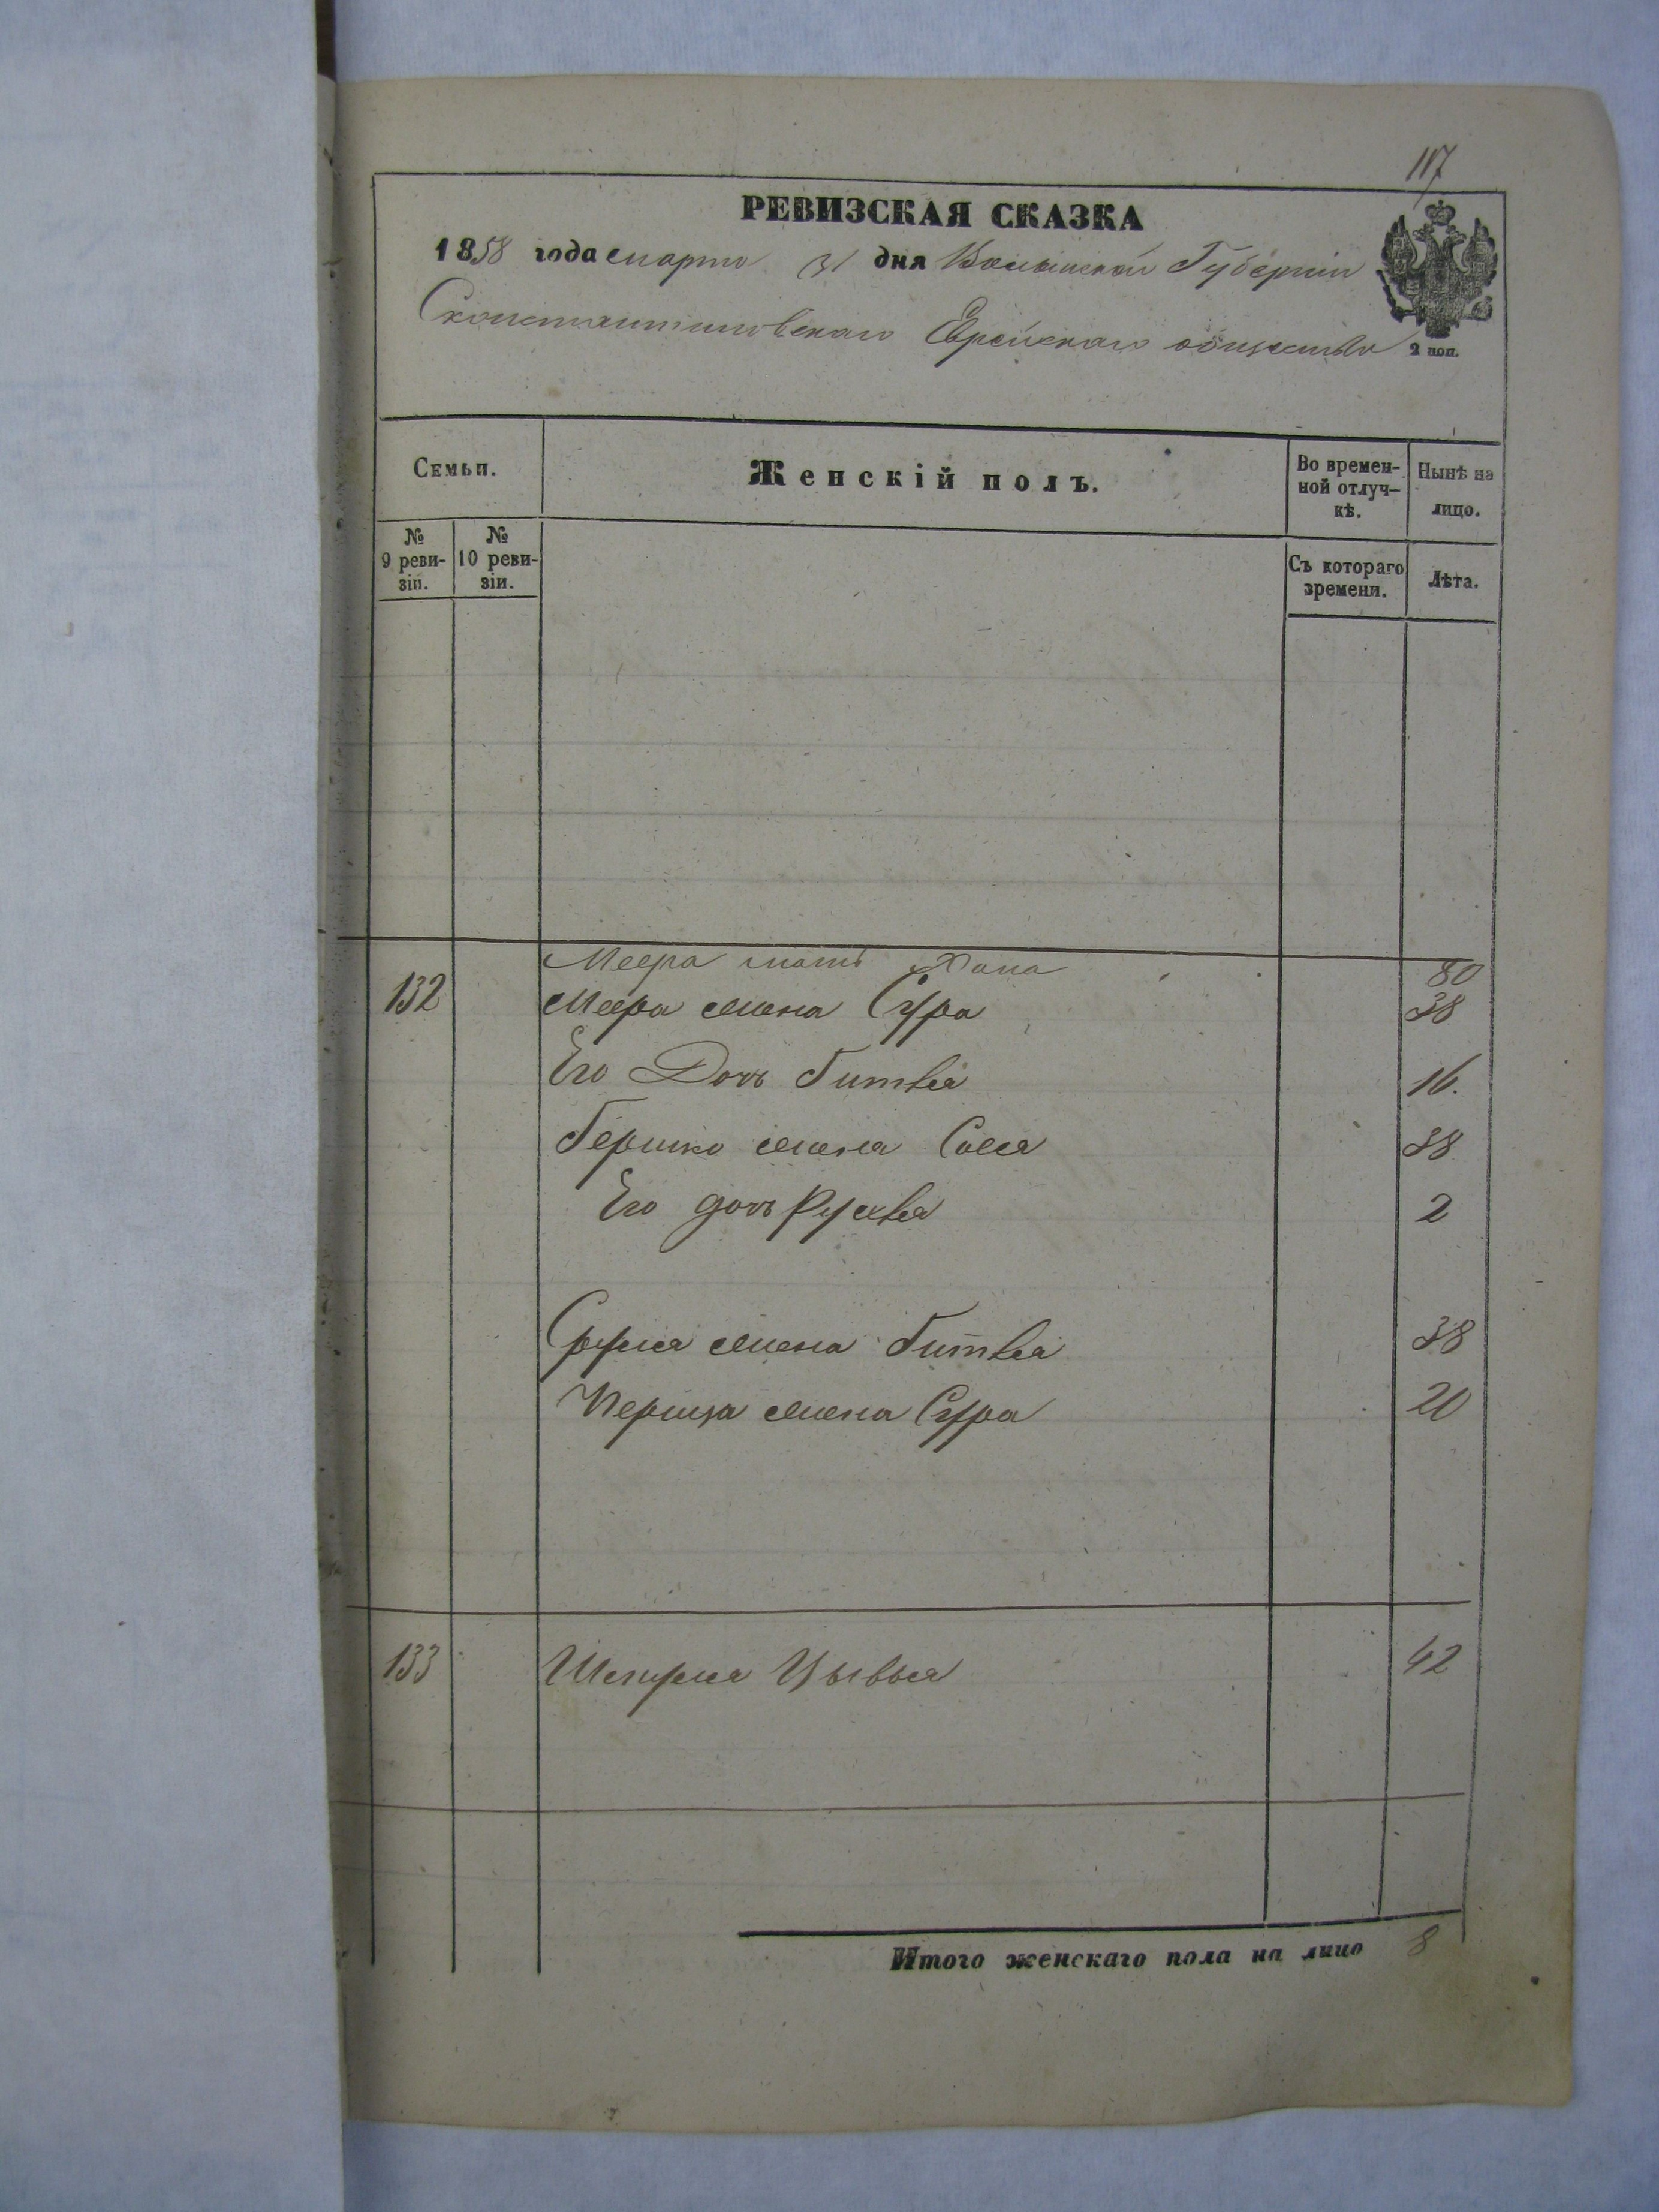 117
РЕВИЗСКАЯ СКАЗКА
1858 года марта 31 дня Волынской Губерніи
Сконстантиновскаго Еврейскаго общества
2 коп.
Семьи.
Женскій полъ.
Во времен-
ной отлуч-
кѣ.
Нынѣ на
лицо.
№
9 реви-
зіи.
№
10 реви-
зіи.
Съ котораго
времени.
Лѣта.
Меера мать Хана 80
132 Меера жена Сура 38
Его Дочь Гитля 16.
Гершко жена Сося 38
Его дочь 2
Сруля жена Гитля 38
Перица жена Сура 20
133 Шмуля Цывья 42
Итого женскаго пола на лицо 8